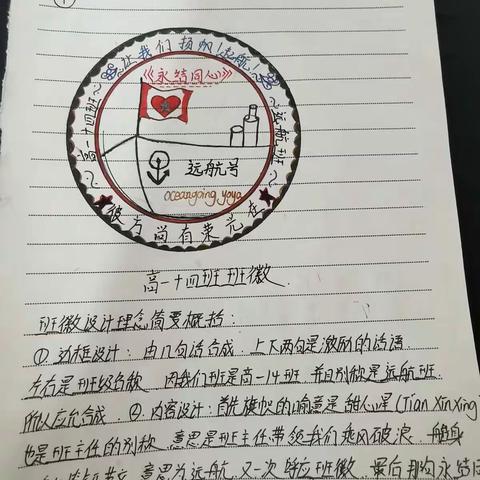 让我们扬帆!起航!
《永结同心》
高一十四班
远航班
远航号
oceangoing yoyo
彼方尚有荣光在
高一十四班班徽.
班徽设计理念简要概括:
① 边框设计: 由几句话合成. 上下两句是激励的话语.
左右是班级名称 因我们班是高一14班 并且别称是远航班
所以应允合成. ② 内容设计: 首先横帜的喻意是甜心星(Tian Xin Xing)
也是班主任的别称. 意思是班主任带领我们乘风破浪. 船身
意为远航 又一次 班徽. 最后 永结同